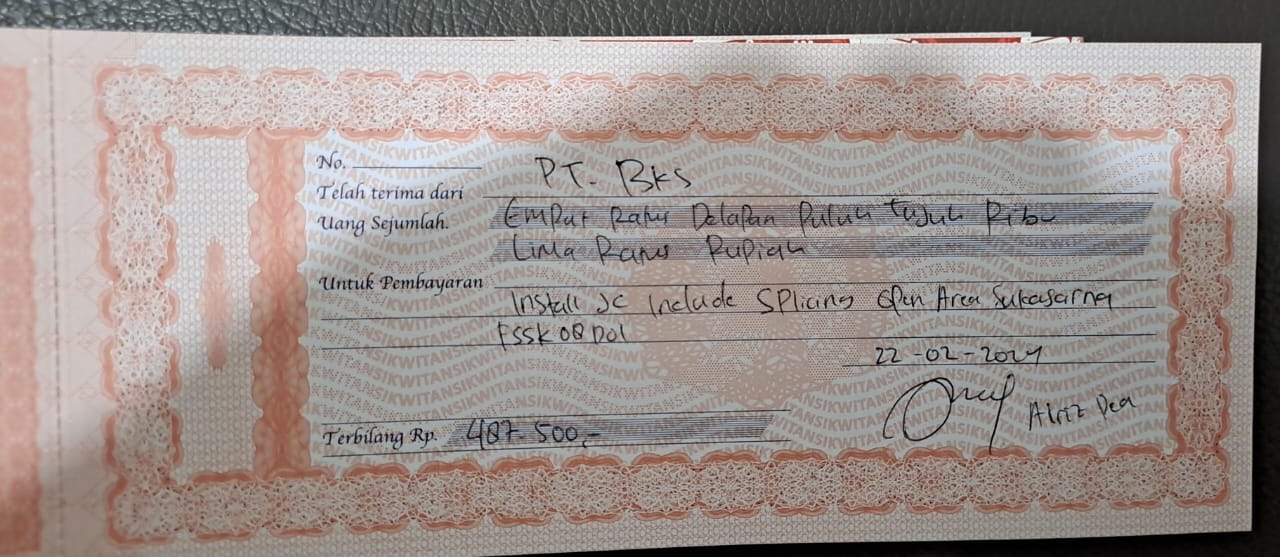 No.
Telah terima dari PT. Bks
Uang Sejumlah. Empat Ratus Delapan Puluh Tujuh Ribu
Lima Ratus Rupiah
Untuk Pembayaran
Install JC Include Splicing Open Area Sukasarna
FSSK 08 D01
22-02-2024
Terbilang Rp. 487.500,-